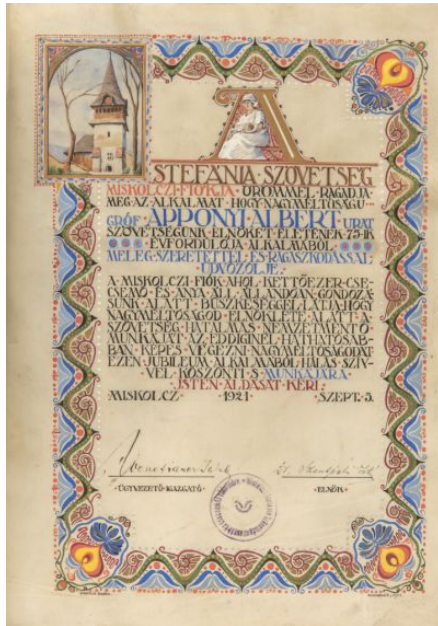 A
STEFÁNIA·SZÖVETSÉG
MISKOLCZI·FIÓKJA·ÖRÖMMEL·RAGADJA·
MEG·AZ·ALKALMAT·HOGY·NAGYMÉLTÓSÁGU·
GRÓF·APPONYI·ALBERT·URAT
SZÖVETSÉGÜNK·ELNÖKÉT·ÉLETÉNEK·75-IK
·ÉVFORDULÓJA·ALKALMÁBÓL·
MELEG·SZERETETTEL·ÉS·RAGASZKODÁSSAL·
ÜDVÖZÖLJE·
A·MISKOLCZI·FIÓK·AHOL·KETTŐEZER·CSE-
CSEMŐ·ÉS·ANYA·ÁLL·ÁLLANDÓAN·GONDOZÁ-
SUNK·ALATT·BÜSZKESÉGGEL·LÁTJA·HOGY
NAGYMÉLTÓSÁGOD·ELNÖKLETE·ALATT·A·
SZÖVETSÉG·HATALMAS·NEMZETMENTŐ
MUNKÁJÁT·AZ·EDDIGINÉL·HATHATÓSAB-
BAN·KÉPES·VÉGEZNI·NAGYMÉLTÓSÁGODAT
EZEN·JUBILEUM·ALKALMÁBÓL·HÁLÁS·SZÍV-
VEL·KÖSZÖNTI·S·MUNKÁJÁRA·
·ISTEN·ÁLDÁSÁT·KÉRI·
·MISKOLCZ· 1921 ·SZEPT·3.
·ÜGYVEZETŐ·IGAZGATÓ· ·ELNÖK·